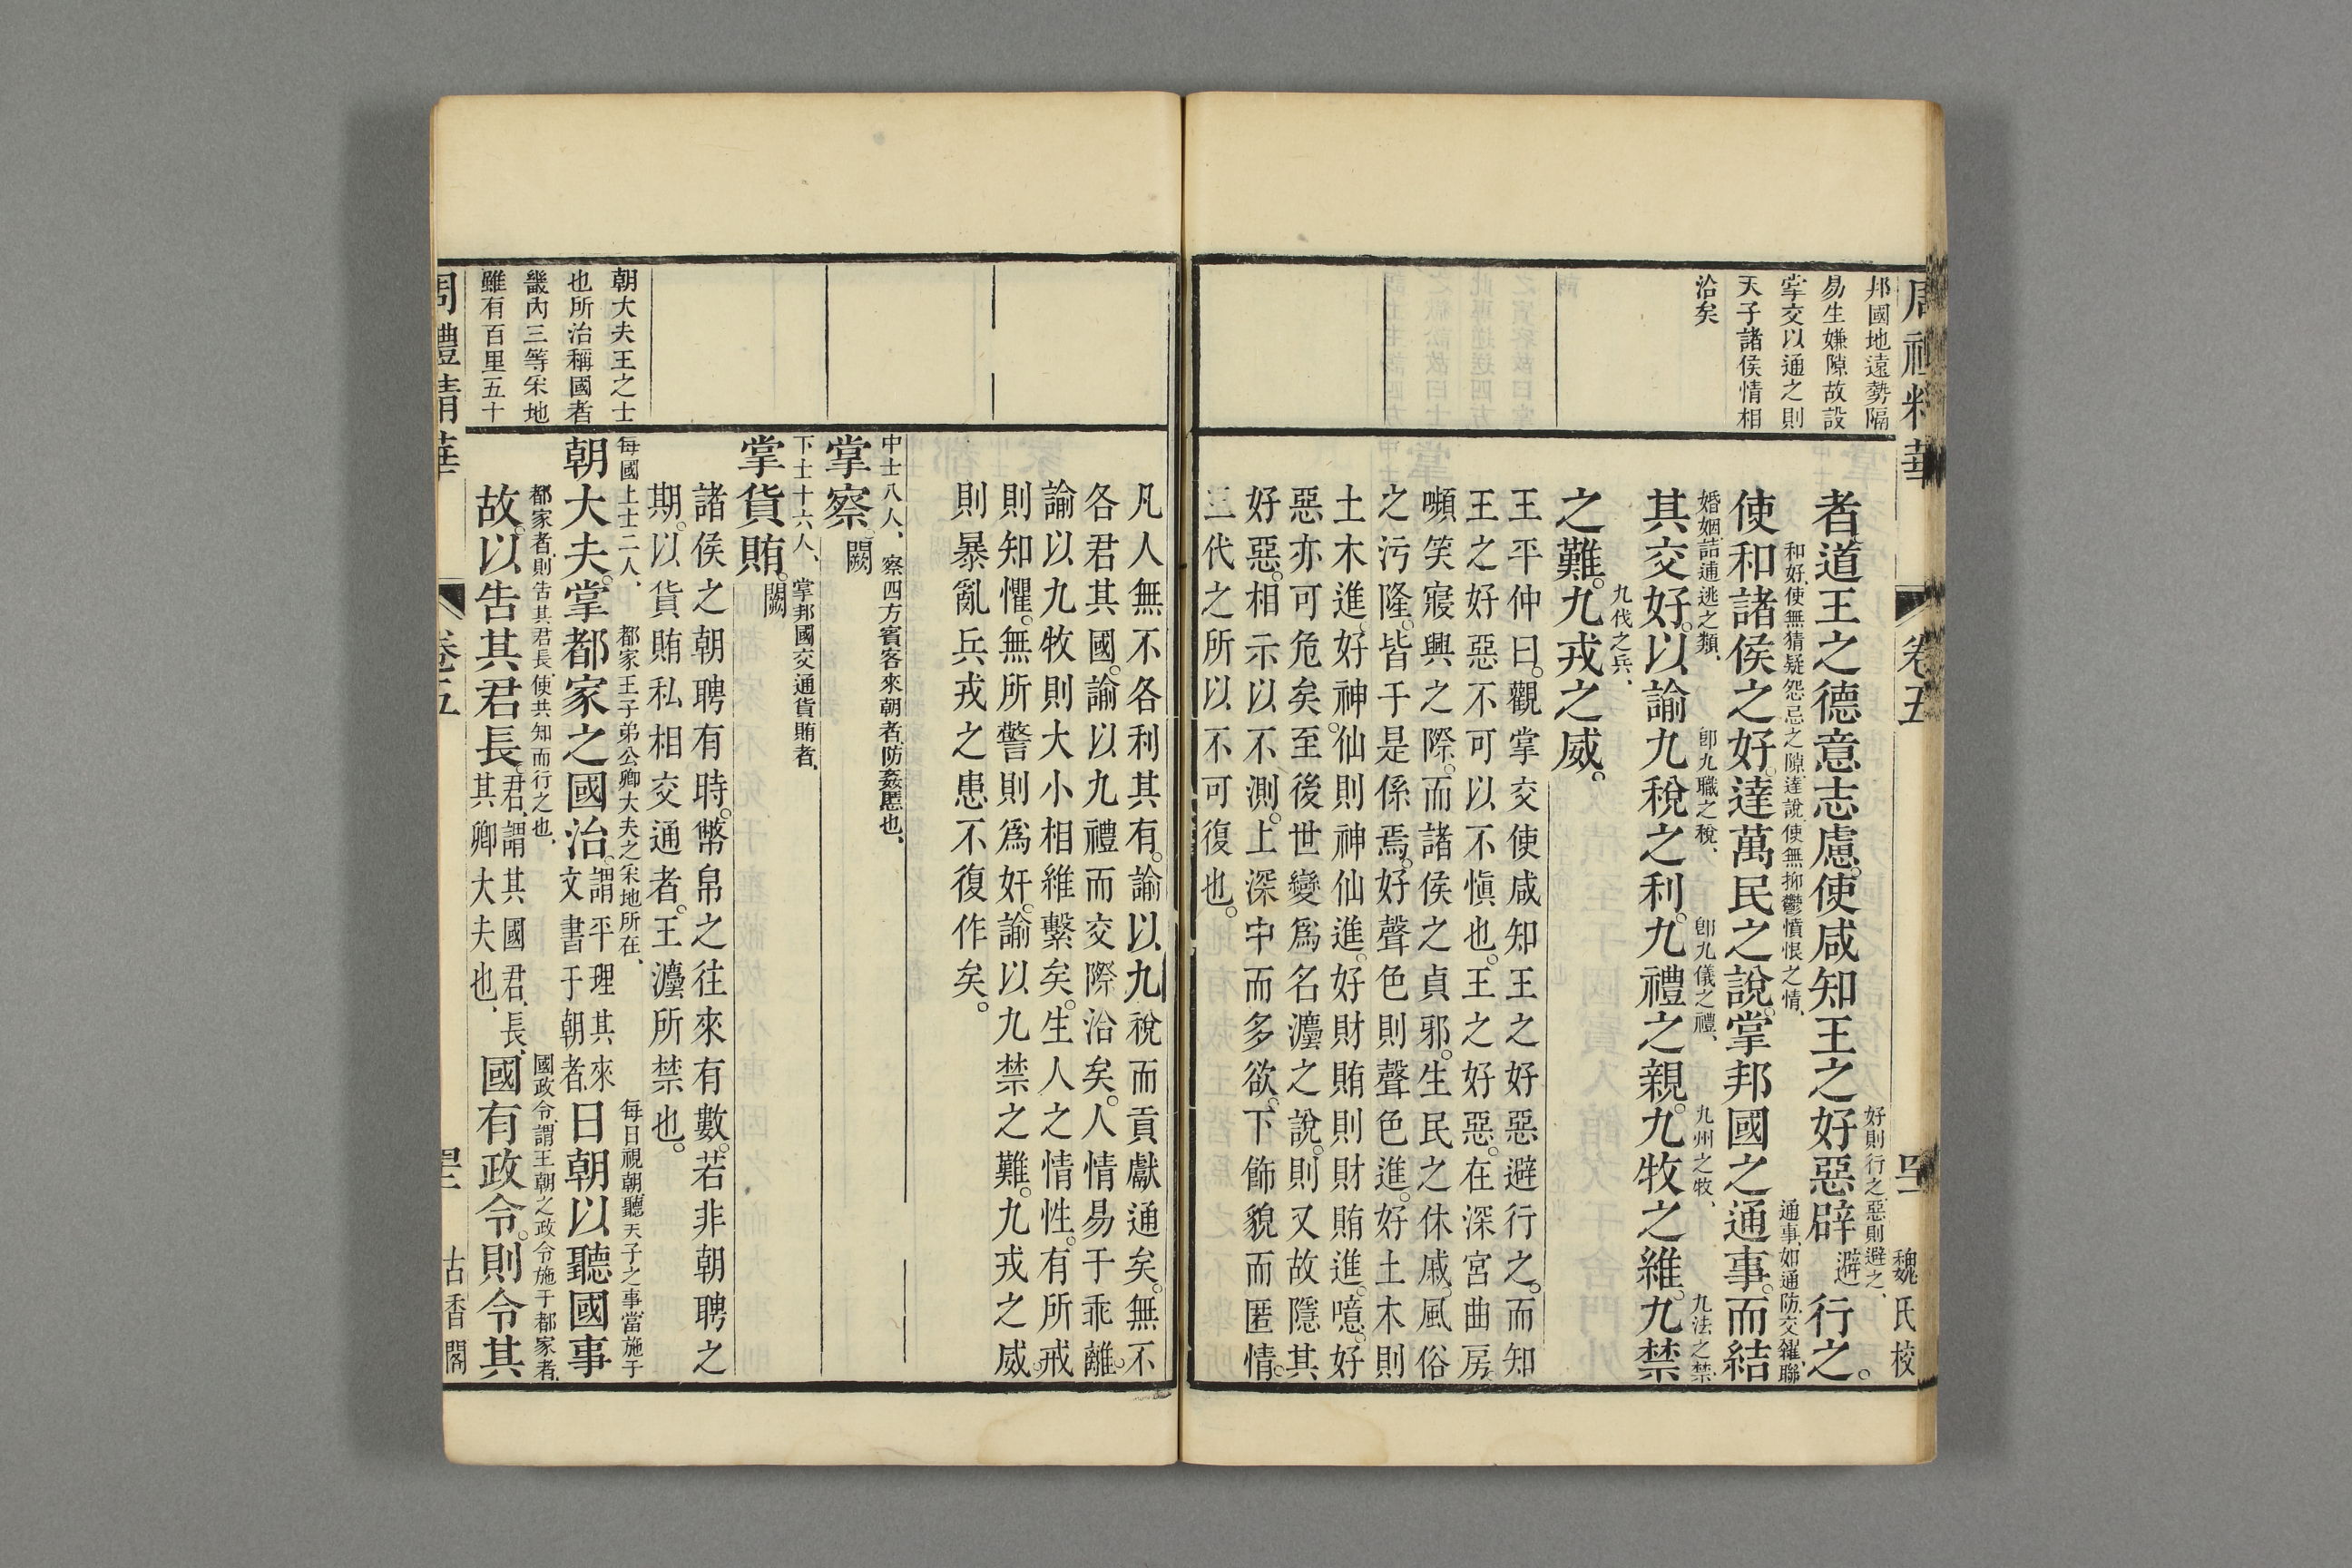 周禮精華
卷五
四十一
魏氏校
邦國地遠勢隔
易生嫌隙故設
掌交以通之則
天子諸侯情相
洽矣
好則行之、惡則避之、
者道王之德意志慮。使咸知王之好惡辟避行之。
和好、使無猜疑怨忌之隙、達說、使無抑鬱憤恨之情、
通事、如通防、交讎、聯
使和諸侯之好。達萬民之說。掌邦國之通事。而結
婚姻、詰逋逃之類、
卽九職之稅、
卽九儀之禮、
九州之牧、
九法之禁、
其交好。以諭九稅之利。九禮之親。九牧之維。九禁
九伐之兵、
之難。九戎之威。
王平仲曰。觀掌交使咸知王之好惡避行之。而知
王之好惡不可以不愼也。王之好惡。在深宮曲房。
嚬笑寢興之際。而諸侯之貞邪。生民之休戚。風俗
之污隆。皆于是係焉。好聲色則聲色進。好土木則
土木進。好神仙則神仙進。好財賄則財賄進。噫。好
惡亦可危矣至後世變爲名灋之說。則又故隱其
好惡。相示以不測。上深中而多欲。下飾貌而匿情。
三代之所以不可復也。
凡人無不各利其有。諭以九稅而貢獻通矣。無不
各君其國。諭以九禮而交際洽矣。人情易于乖離。
諭以九牧則大小相維繫矣。生人之情性。有所戒
則知懼。無所警則爲奸。諭以九禁之難。九戎之威。
則暴亂兵戎之患不復作矣。
中士八人、察四方賓客來朝者、防姦慝也、
掌察。闕
下士十六人、掌邦國交通貨賄者、
掌貨賄。闕
諸侯之朝聘有時。幣帛之往來有數。若非朝聘之
期。以貨賄私相交通者。王灋所禁也。
朝大夫王之士
也所治稱國者
畿內三等采地
雖有百里五十
每國上士二人、都家王子弟公卿大夫之采地所在、
每日視朝、聽天子之事當施于
朝大夫。掌都家之國治。謂平理其來文書于朝者、日朝以聽國事
都家者、則告其君長、使其知而行之也、
國政令、謂王朝之政令施于都家者、
故。以告其君長。君、謂其國君、長、其卿大夫也、國有政令。則令其
周禮精華
卷五
四十二
古香閣